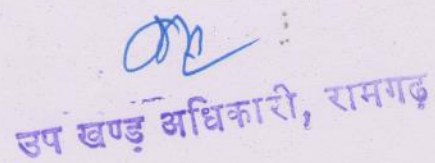 उप खण्ड़ अधिकारी, रामगढ़